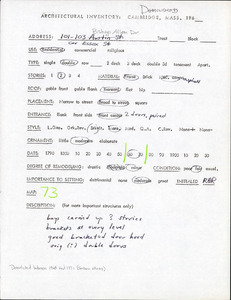 Demolished
ARCHITECTURAL INVENTORY: CAMBRIDGE, MASS. 196
Bishop Allen Dr
ADDRESS: 101-103 Austin St Tract Block
cor Essex St
USE: Residential commercial religious
TYPE: single double row 2 deck 3 deck double 3d tenement Apart.
STORIES: 1 2 3 4 MATERIAL:
ROOF: gable front gable flank hip flat mansard
PLACEMENT: Narrow to street Broad to street square
ENTRANCE: flank front side front center 2 doors, paired
STYLE:
ORNAMENT: little moderate elaborate
DATE: 1790 1810 20 30 40 50 60 70 80 90 1900 10 20 30
DEGREE OF REMODELLING: drastic minor CONDITION: poor fair good
IMPORTANCE TO SETTING: distinctive great INITIALED RBR
MAP: 73
DESCRIPTION: (for more important structures only)
bays carried up 3 stories
brackets at every level
good bracketed door hood
orig (?) double doors
Demolished between 1965 and 1971